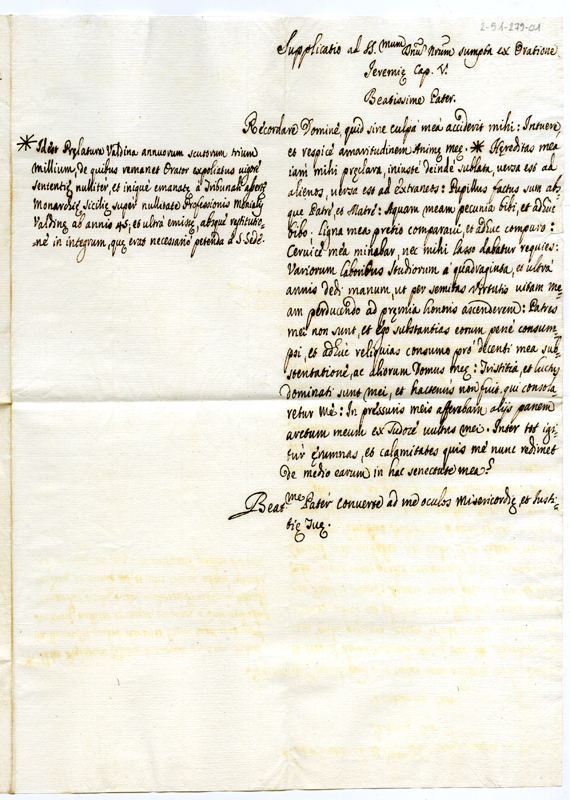 2-51-279-01
Supplicatio ad SS.mum Dnũ Nrũm sumpta ex Oratione
Ieremię Cap. V.
Beatissime Pater.
Recordare Dominé, quid sine culpâ meâ acciderit mihi: Intuere,
et respicé amaritudinem Animę meę. * Hęreditas mea
iam mihi pręclara, iniusté deindé sublata, versa est ad
alienos, versa est ad Extraneos: Pupillus factus sum abs-
que Patré, et Matré: Aquam meam pecunia bibi, et adhuc
bibo: Ligna mea pretio comparaui, et adhuc comparo:
Ceruicé meâ minabar, nec mihi lasso dabatur requies:
Variorum laboribus Studiorum à quadraginta, et ultrà
annis dedi manum, ut per semitas Virtutis uitam me-
am perducendo ad pręmia honoris ascenderem: Patres
mei non sunt, et ego substantias eorum pené consum-
psi, et adhuc reliquias consumo pro decenti mea sub-
stentatione, ac aliorum Domus meę: Tristitia, et luctus
dominati sunt mei, et hactenùs non fuit, qui consola-
retur me: In pressuris meis afferebam alijs panem
arctum meum ex sudore uultus mei. Inter tot igi-
tur ęrumnas, et calamitates quis mé nunc redimet
de medio earum in hac senectute mea?
Beat.me Pater conuerte ad me oculos Misericordię, et Iusti-
tię Tuę.
* Idest Pręlatura Valdina annuorum scutorum trium
millium, de quibus remanet Orator expoliatus uigore
sententię nulliter, et iniqué emanatę à Tribunali
Monarchię Sicilię super nullitate Professionis
Valdinę ab annis 45, et ultrà emissę, absque restitutio-
né in integrum, quę erat necessario petenda à S. Sede.